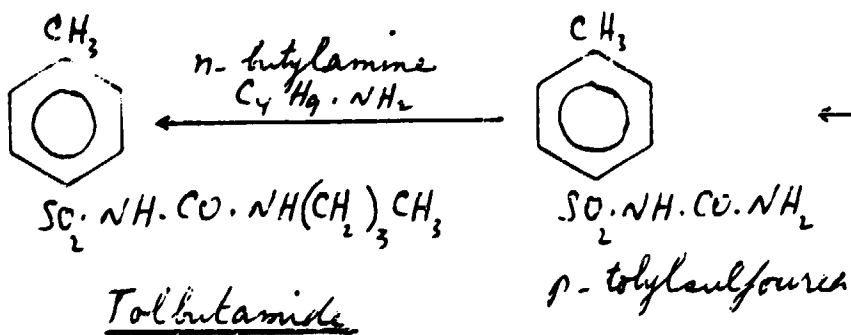 CH₃ CH₃
n-butylamine
C₄H₉·NH₂
SO₂·NH·CO·NH(CH₂)₃CH₃ SO₂·NH·CO·NH₂
p-tolylsulfourea
Tolbutamide